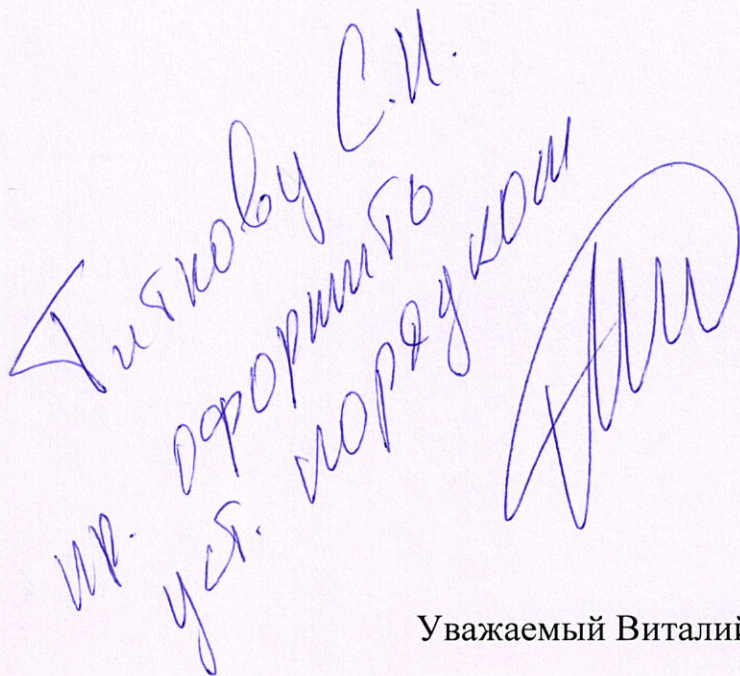 Титкову С.И.
пр. оформить
уст. порядком
Уважаемый Виталий